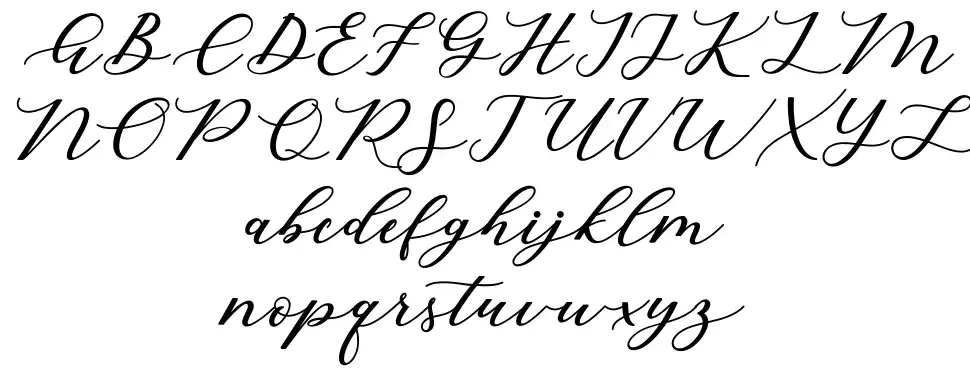 A B C D E F G H I J K L M
N O P Q R S T U V W X Y Z
abcdefghijklm
nopqrstuvwxyz